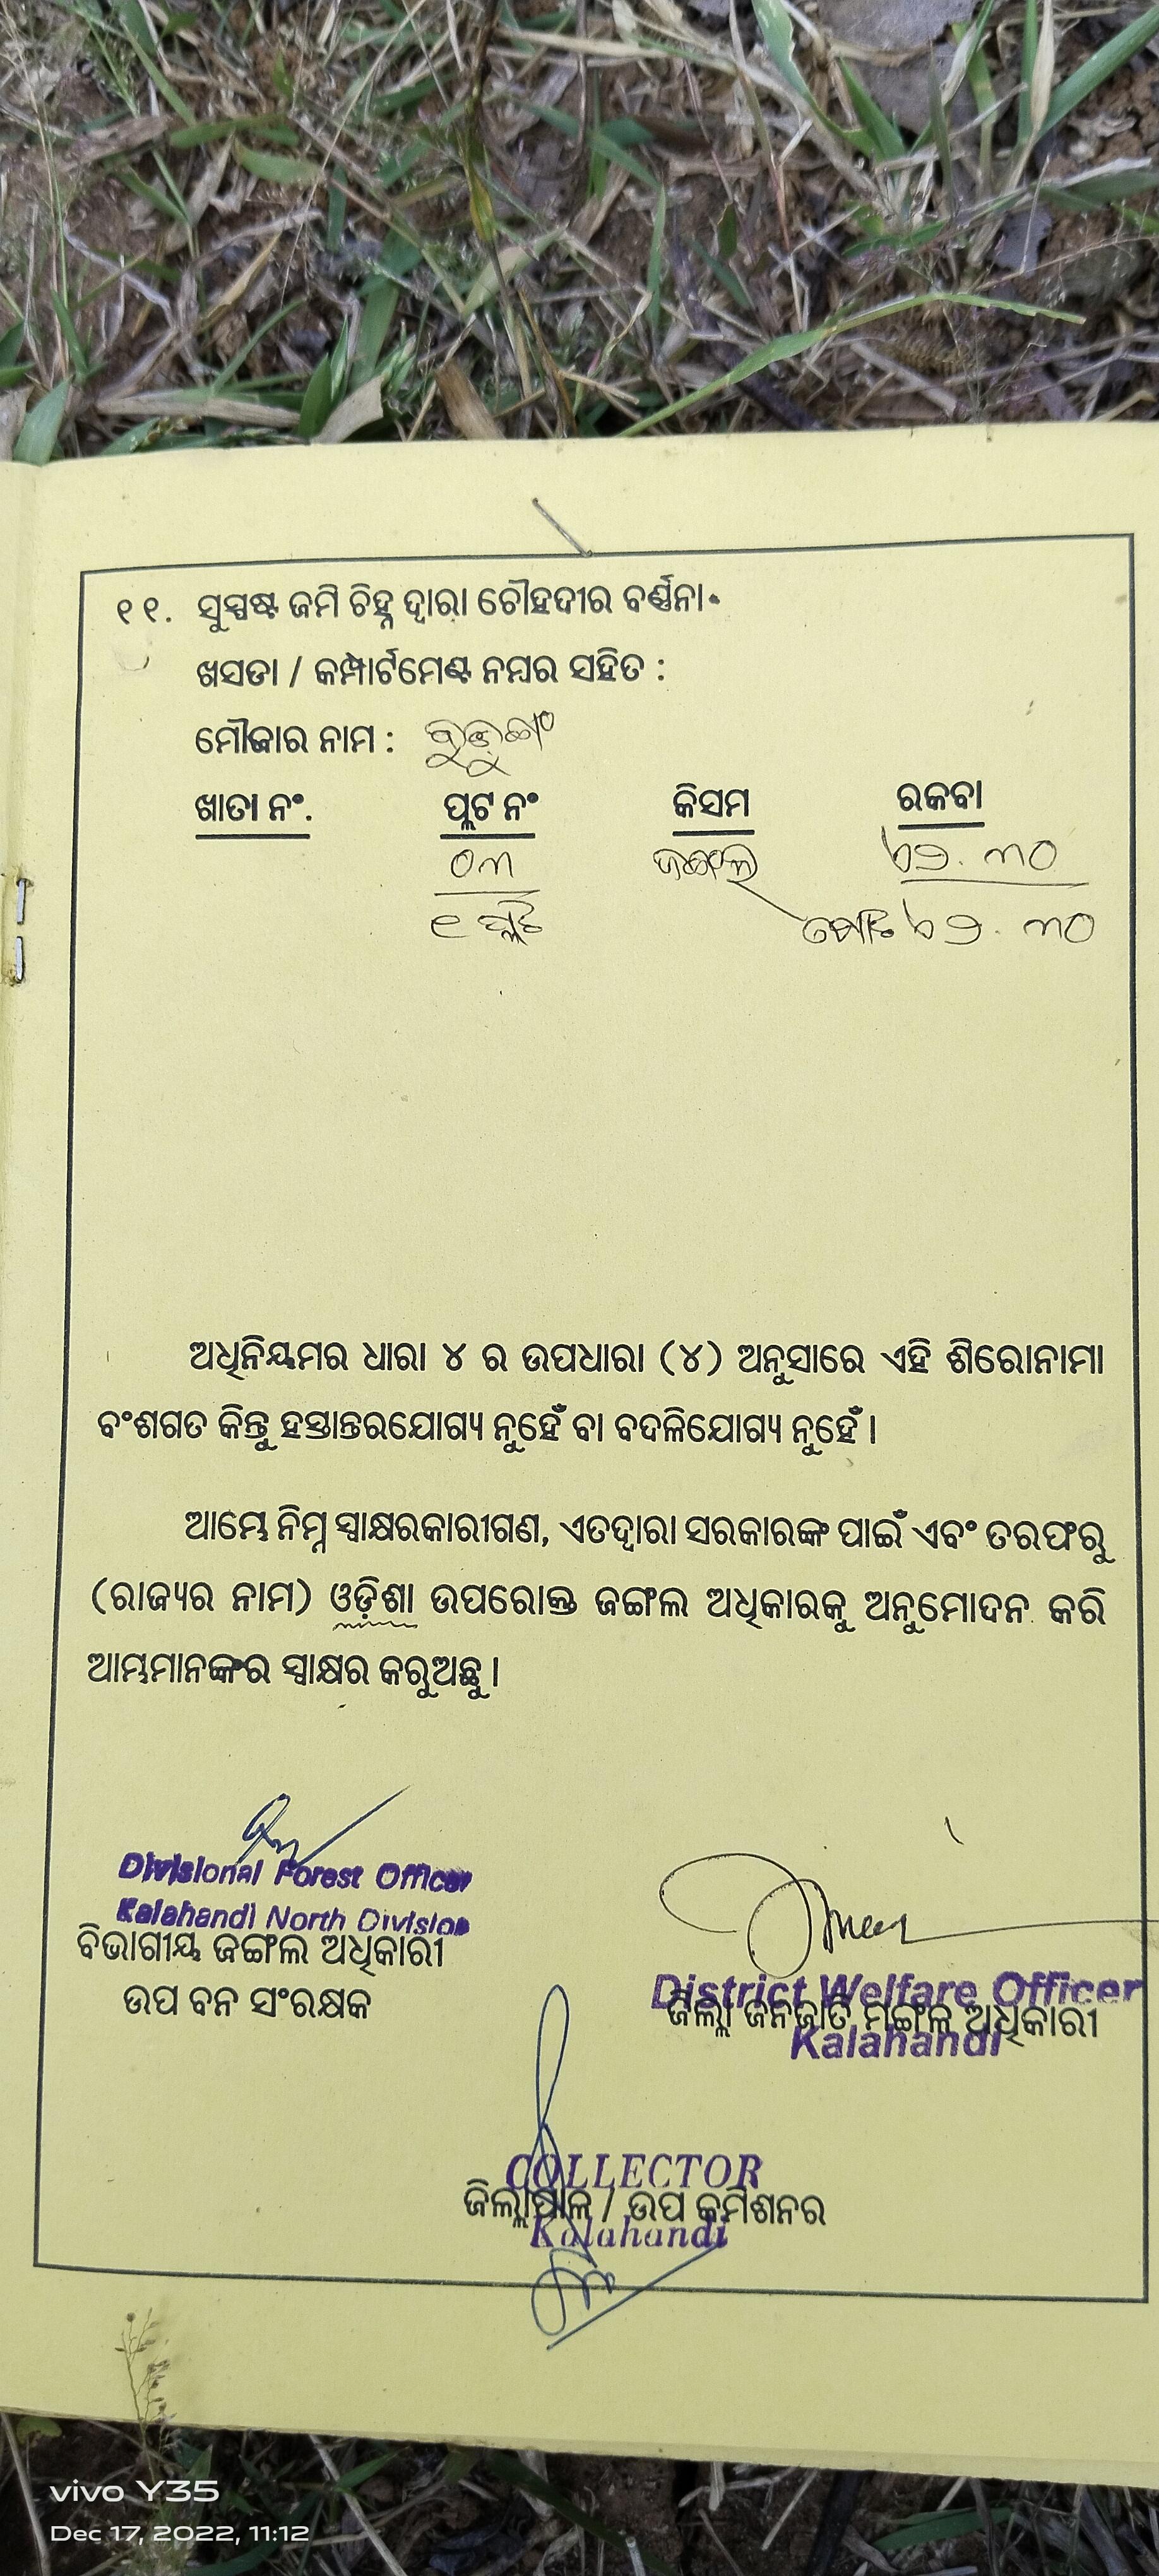 ୧୧. ସୁସ୍ପଷ୍ଟ ଜମି ଚିହ୍ନ ଦ୍ୱାରା ଚୌହଦୀର ବର୍ଣ୍ଣନା
ଖସଡା / କମ୍ପାର୍ଟମେଣ୍ଟ ନମ୍ବର ସହିତ :
ମୌଜାର ନାମ :
ଖାତା ନଂ. ପ୍ଲଟ ନଂ କିସମ ରକବା
୦୩ ଜଙ୍ଗଲ ୭୨.୩୦
୧ ପ୍ଲଟ ମୋଟ ୭୨.୩୦
ଅଧିନିୟମର ଧାରା ୪ ର ଉପଧାରା (୪) ଅନୁସାରେ ଏହି ଶିରୋନାମା
ବଂଶଗତ କିନ୍ତୁ ହସ୍ତାନ୍ତରଯୋଗ୍ୟ ନୁହେଁ ବା ବଦଳିଯୋଗ୍ୟ ନୁହେଁ ।
ଆମ୍ଭେ ନିମ୍ନ ସ୍ୱାକ୍ଷରକାରୀଗଣ, ଏତଦ୍ୱାରା ସରକାରଙ୍କ ପାଇଁ ଏବଂ ତରଫରୁ
(ରାଜ୍ୟର ନାମ) ଓଡ଼ିଶା ଉପରୋକ୍ତ ଜଙ୍ଗଲ ଅଧିକାରକୁ ଅନୁମୋଦନ କରି
ଆମ୍ଭମାନଙ୍କର ସ୍ୱାକ୍ଷର କରୁଅଛୁ ।
Divisional Forest Officer
Kalahandi North Division
ବିଭାଗୀୟ ଜଙ୍ଗଲ ଅଧିକାରୀ
ଉପ ବନ ସଂରକ୍ଷକ
District Welfare Officer
ଜିଲ୍ଲା ଜନଜାତି ମଙ୍ଗଳ ଅଧିକାରୀ
Kalahandi
COLLECTOR
ଜିଲ୍ଲାପାଳ / ଉପ କମିଶନର
Kalahandi
vivo Y35
Dec 17, 2022, 11:12